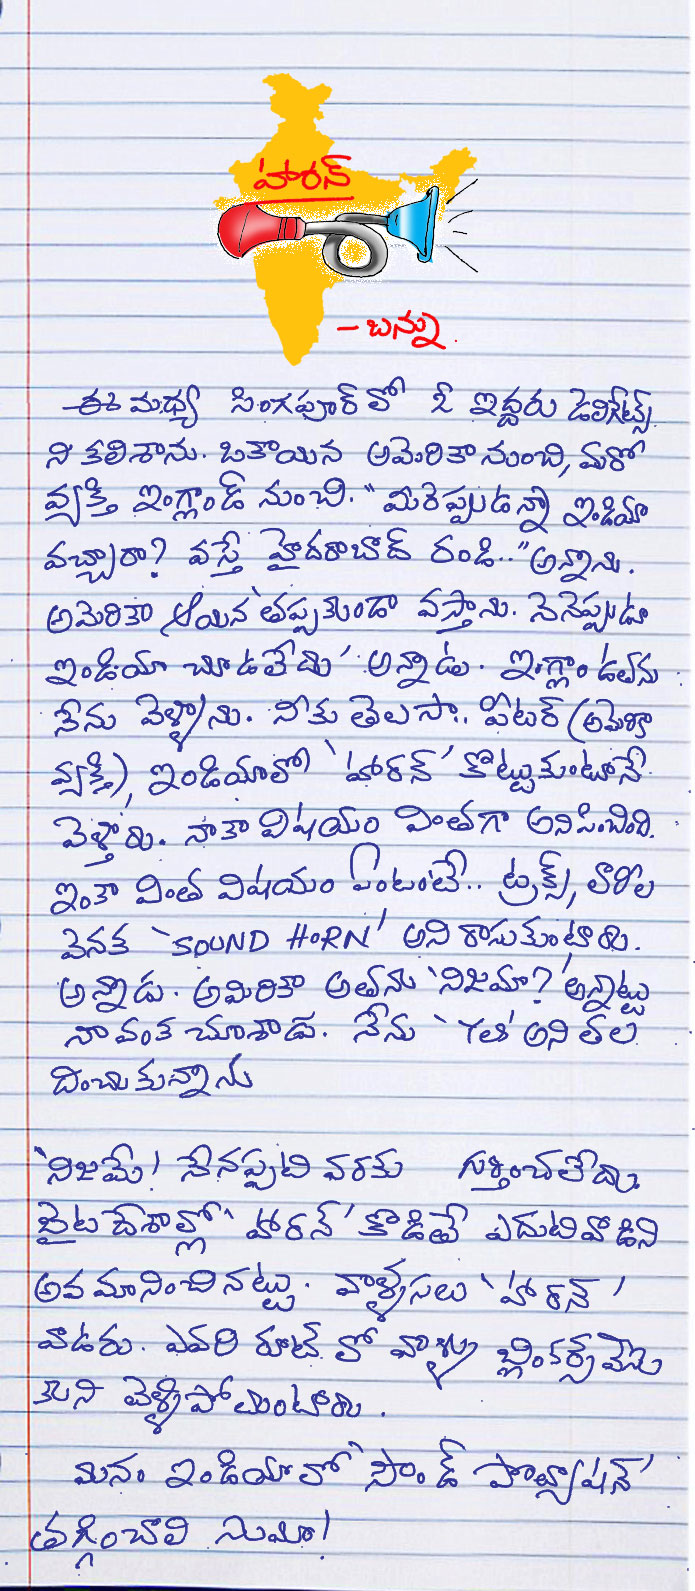 హారన్
- బన్ను.
ఈ మధ్య సింగపూర్ లో ఓ ఇద్దరు డెలిగేట్స్
ని కలిశాను. ఒకాయన అమెరికా నుంచి, మరో
వ్యక్తి ఇంగ్లాండ్ నుంచి. "మీరెప్పుడన్నా ఇండియా
వచ్చారా? వస్తే హైదరాబాద్ రండి.." అన్నాను.
అమెరికా ఆయన 'తప్పకుండా వస్తాను. నేనెప్పుడూ
ఇండియా చూడలేదు' అన్నాడు. ఇంగ్లాండతను
నేను వెళ్ళాను. నీకు తెలుసా.. పీటర్ (అమెరికా
వ్యక్తి), ఇండియాలో 'హారన్' కొట్టుకుంటూనే
వెళ్తారు. నాకా విషయం వింతగా అనిపించింది.
ఇంకా వింత విషయం ఏంటంటే.. ట్రక్స్, లారీల
వెనక 'SOUND HORN' అని రాసుకుంటారు.
అన్నాడు. అమెరికా అతను 'నిజమా?' అన్నట్టు
నా వంక చూశాడు. నేను 'Yes' అని తల
దించుకున్నాను
'నిజమే! నేనప్పటి వరకు గుర్తించలేదు.
బైట దేశాల్లో 'హారన్' కొడితే ఎదుటివాడిని
అవమానించినట్టు. వాళ్ళసలు 'హారన్'
వాడరు. ఎవరి రూట్ లో వాళ్ళు బ్లింకర్స్ వేసు
కుని వెళ్ళిపోతుంటారు.
మనం ఇండియాలో 'సౌండ్ పొల్యూషన్'
తగ్గించాలి సుమా!